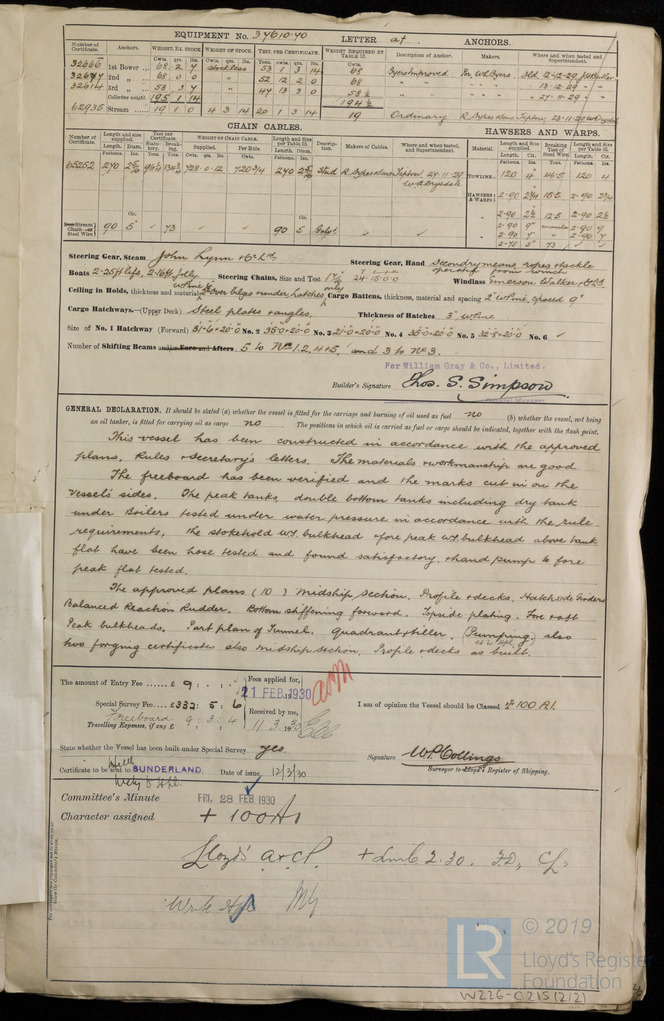 EQUIPMENT No. 37610.40 LETTER at. ANCHORS.
Number of Certificate. Anchors. WEIGHT, EX. STOCK WEIGHT OF STOCK. TEST, PER CERTIFICATE. WEIGHT REQUIRED BY TABLE 22. Description of Anchor. Makers. Where and when tested and Superintendent.
32666 1st Bower 68 2 7 Stockless 53 1 3 14 68 Byers Improved W.L. Byers
32647 2nd " 68 0 0 " 52 12 2 0 68 " " 13.12.29 "
32614 3rd " 58 3 7 " 47 13 3 0 58½ " " 27.11.29 "
Collective weight 195 1 14 194½
62935 Stream 19 1 0 4 3 14 20 1 3 14 19 Ordinary R. Sykes & Sons Tipton
CHAIN CABLES. HAWSERS AND WARPS.
Number of Certificate. Length and size supplied. Test per Certificate. WEIGHT OF CHAIN CABLE. Length and Size per Table 22. Description. Makers of Cables. Where and when tested, and Superintendent. Material Length and Size supplied. Breaking Test of Steel Wire Length and Size per Table 22.
Length. Diam. Statutory. Breaking. Supplied. Per Rule. Length. Diam.
65252 270 728.0.12 720 3/4 270 Stud R. Sykes & Sons Tipton 27.11.29
W.A. Drysdale
TOWLINE 120 4" 120 4
HAWSERS & WARPS 2-90 2¾ 15.5 2-90 2¾
" 2-90 2½ 12.5 2-90 2½
" 2-90 9" manila 2-90 9
" 2-90 7" " 2-90 7
2-75 5" 73
Iron Stream Chain or Steel Wire 90 5 73 90 5 Galvd.
Steering Gear, Steam John Lynn & Co Ltd Steering Gear, Hand Secondry means ropes & tackle
operated from winch
Boats 2-25ft life, 2-16ft Jolly Steering Chains, Size and Test Windlass Emerson Walker & Co Ld
Ceiling in Holds, thickness and material over bilges & under hatches only Cargo Battens, thickness, material and spacing 2" W. Pine, spaced 9"
Cargo Hatchways.—(Upper Deck) Steel plates & angles. Thickness of Hatches 3" W. Pine
Size of No. 1 Hatchway (Forward) 31'-6" x 20'-0" No. 2 35'-0" x 20'-0" No. 3 21'-0" x 20'-0" No. 4 35'-0" x 20'-0" No. 5 32'-8" x 20'-0" No. 6
Number of Shifting Beams and/or Fore and Afters. 5 to Nos 1. 2. 4 & 5, and 3 to No 3.
For William Gray & Co., Limited.
Builder's Signature Thos. S. Simpson
GENERAL DECLARATION. It should be stated (a) whether the vessel is fitted for the carriage and burning of oil used as fuel no (b) whether the vessel, not being
an oil tanker, is fitted for carrying oil as cargo no The positions in which oil is carried as fuel or cargo should be indicated, together with the flash point.
This vessel has been constructed in accordance with the approved
plans, Rules & Secretary's letters. The materials & workmanship are good.
The freeboard has been verified and the marks cut in on the
Vessel's sides. The peak tanks, double bottom tanks including dry tank
under Boilers tested under water pressure in accordance with the rule
requirements, the stokehold WT. bulkhead & fore peak WT bulkhead above tank
flat have been hose tested and found satisfactory, & hand pump to fore
peak flat tested.
The approved plans (10) Midship Section. Profile & decks. Hatch side Girders
Balanced Reaction Rudder. Bottom stiffening forward. Topside plating. Fore & aft
Peak bulkheads. Part plan of Tunnel. Quadrant & tiller. (Pumping) also
two forging certificates also midship section, Profile & decks as built.
The amount of Entry Fee £ 9 : : Fees applied for,
21 FEB 1930
Special Survey Fee £ 332 : 5 : 6 Received by me,
Freeboard 9 : 3 : 4 11/3 1930
Travelling Expenses, if any £
I am of opinion the Vessel should be Classed + 100 A1.
State whether the Vessel has been built under Special Survey yes
Signature W.P. Collings
Surveyor to Lloyd's Register of Shipping.
Certificate to be sent to SUNDERLAND. Date of issue 12/3/30
Committee's Minute FRI. 28 FEB 1930
Character assigned + 100A1
Lloyd's A & CP. + LMC 2.30. F.D. CL.
Write Hpl
© 2019
LR Lloyd's Register
Foundation
W226-0215(2/2)